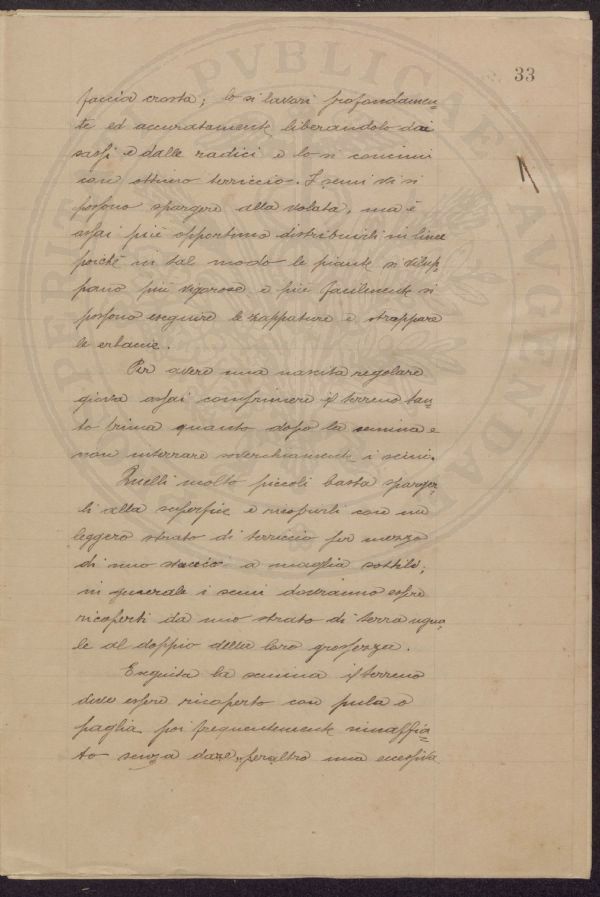 33
faccia crosta; lo si lavori profondamen=
te ed accuratamente liberandolo dai
sassi e dalle radici e lo si concimi
con ottimo terriccio. I semi vi si
possono spargere alla volata, ma è
assai più opportuno distribuirli in linee
poichè in tal modo le piante si svilup=
pano più vigorose e più facilmente si
possono eseguire le zappature e strappare
le erbacce.
Per avere una nascita regolare
giova assai comprimere il terreno tan=
to prima quanto dopo la semina e
non interrare soverchiamente i semi.
Quelli molto piccoli basta sparger=
li alla superficie e ricoprirli con un
leggero strato di terriccio per mezzo
di uno staccio a maglia sottile;
in generale i semi dovranno essere
ricoperti da uno strato di terra ugua=
le al doppio della loro grossezza.
Eseguita la semina il terreno
deve essere ricoperto con pula o
paglia poi frequentemente innaffia=
to senza dare, peraltro una eccessiva